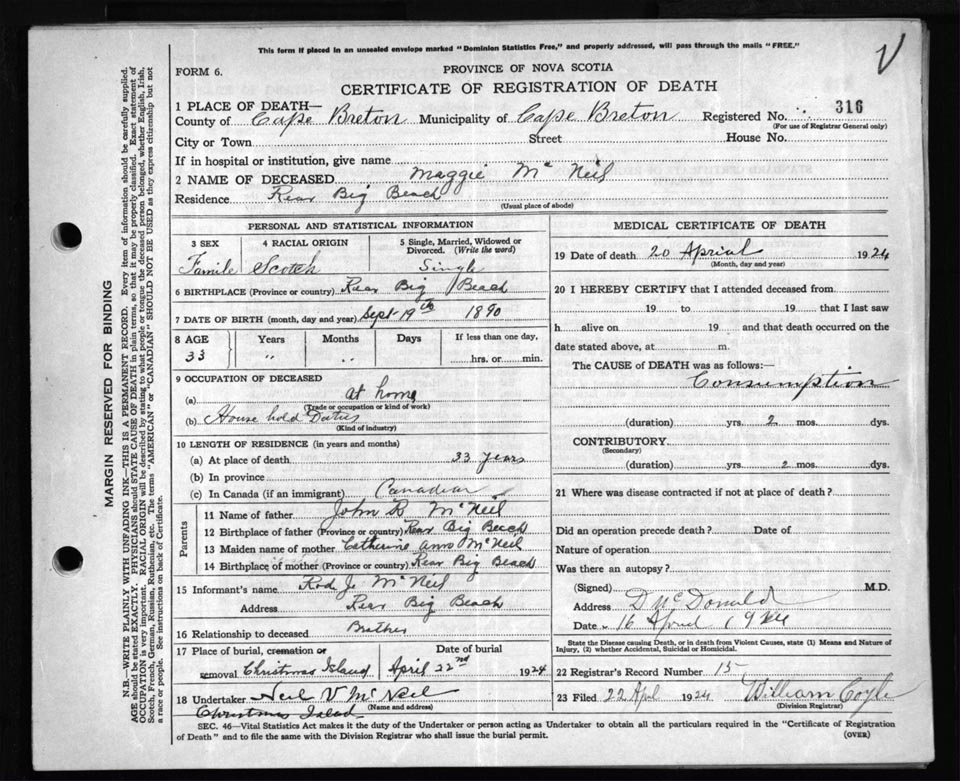 V
This form if placed in an unsealed envelope marked "Dominion Statistics Free," and properly addressed, will pass through the mails "FREE."
FORM 6.
PROVINCE OF NOVA SCOTIA
CERTIFICATE OF REGISTRATION OF DEATH
1 PLACE OF DEATH—
County of Cape Breton Municipality of Cape Breton Registered No. 316
(For use of Registrar General only)
City or Town Street House No.
If in hospital or institution, give name
2 NAME OF DECEASED Maggie McNeil
Residence Rear Big Beach
(Usual place of abode)
PERSONAL AND STATISTICAL INFORMATION
3 SEX 4 RACIAL ORIGIN 5 Single, Married, Widowed or Divorced. (Write the word)
Famile Scotch Single
6 BIRTHPLACE (Province or country) Rear Big Beach
7 DATE OF BIRTH (month, day and year) Sept 19th 1890
8 AGE Years Months Days If less than one day,
33 " " hrs. or min.
9 OCCUPATION OF DECEASED
(a) at home
(Trade or occupation or kind of work)
(b) House hold Duties
(Kind of industry)
10 LENGTH OF RESIDENCE (in years and months)
(a) At place of death 33 years
(b) In province
(c) In Canada (if an immigrant) Canadian
Parents
11 Name of father John R McNeil
12 Birthplace of father (Province or country) Rear Big Beach
13 Maiden name of mother Catherine Ann McNeil
14 Birthplace of mother (Province or country) Rear Big Beach
15 Informant's name Rod J. McNeil
Address Rear Big Beach
16 Relationship to deceased Brother
17 Place of burial, cremation or removal Christmas Island
Date of burial April 22nd 1924
18 Undertaker Neil V McNeil
(Name and address)
Christmas Island
MEDICAL CERTIFICATE OF DEATH
19 Date of death 20 Aprial 1924
(Month, day and year)
20 I HEREBY CERTIFY that I attended deceased from
19 to 19 that I last saw
h alive on 19 and that death occurred on the
date stated above, at m.
The CAUSE OF DEATH was as follows:—
Consumption
(duration) yrs. 2 mos. dys.
CONTRIBUTORY
(Secondary)
(duration) yrs. 2 mos. dys.
21 Where was disease contracted if not at place of death?
Did an operation precede death? Date of
Nature of operation
Was there an autopsy?
(Signed) M.D.
Address D McDonald
Date 16 April 1924
State the Disease causing Death, or in death from Violent Causes, state (1) Means and Nature of
Injury, (2) whether Accidental, Suicidal or Homicidal.
22 Registrar's Record Number 15
23 Filed 22 Apl 1924 William Coyle
(Division Registrar)
SEC. 46—Vital Statistics Act makes it the duty of the Undertaker or person acting as Undertaker to obtain all the particulars required in the "Certificate of Registration
of Death" and to file the same with the Division Registrar who shall issue the burial permit.
(OVER)
MARGIN RESERVED FOR BINDING
N.B.—WRITE PLAINLY WITH UNFADING INK—THIS IS A PERMANENT RECORD. Every item of information should be carefully supplied.
AGE should be stated EXACTLY. PHYSICIANS should STATE CAUSE OF DEATH in plain terms, so that it may be properly classified. Exact statement of
OCCUPATION is very important. RACIAL ORIGIN will be described by stating to what people or tongue the deceased person belonged, whether English, Irish,
Scotch, French, German, Russian, Ruthenian, etc. The terms "AMERICAN" or "CANADIAN" SHOULD NOT BE USED as they express citizenship but not
a race or people. See instructions on back of Certificate.